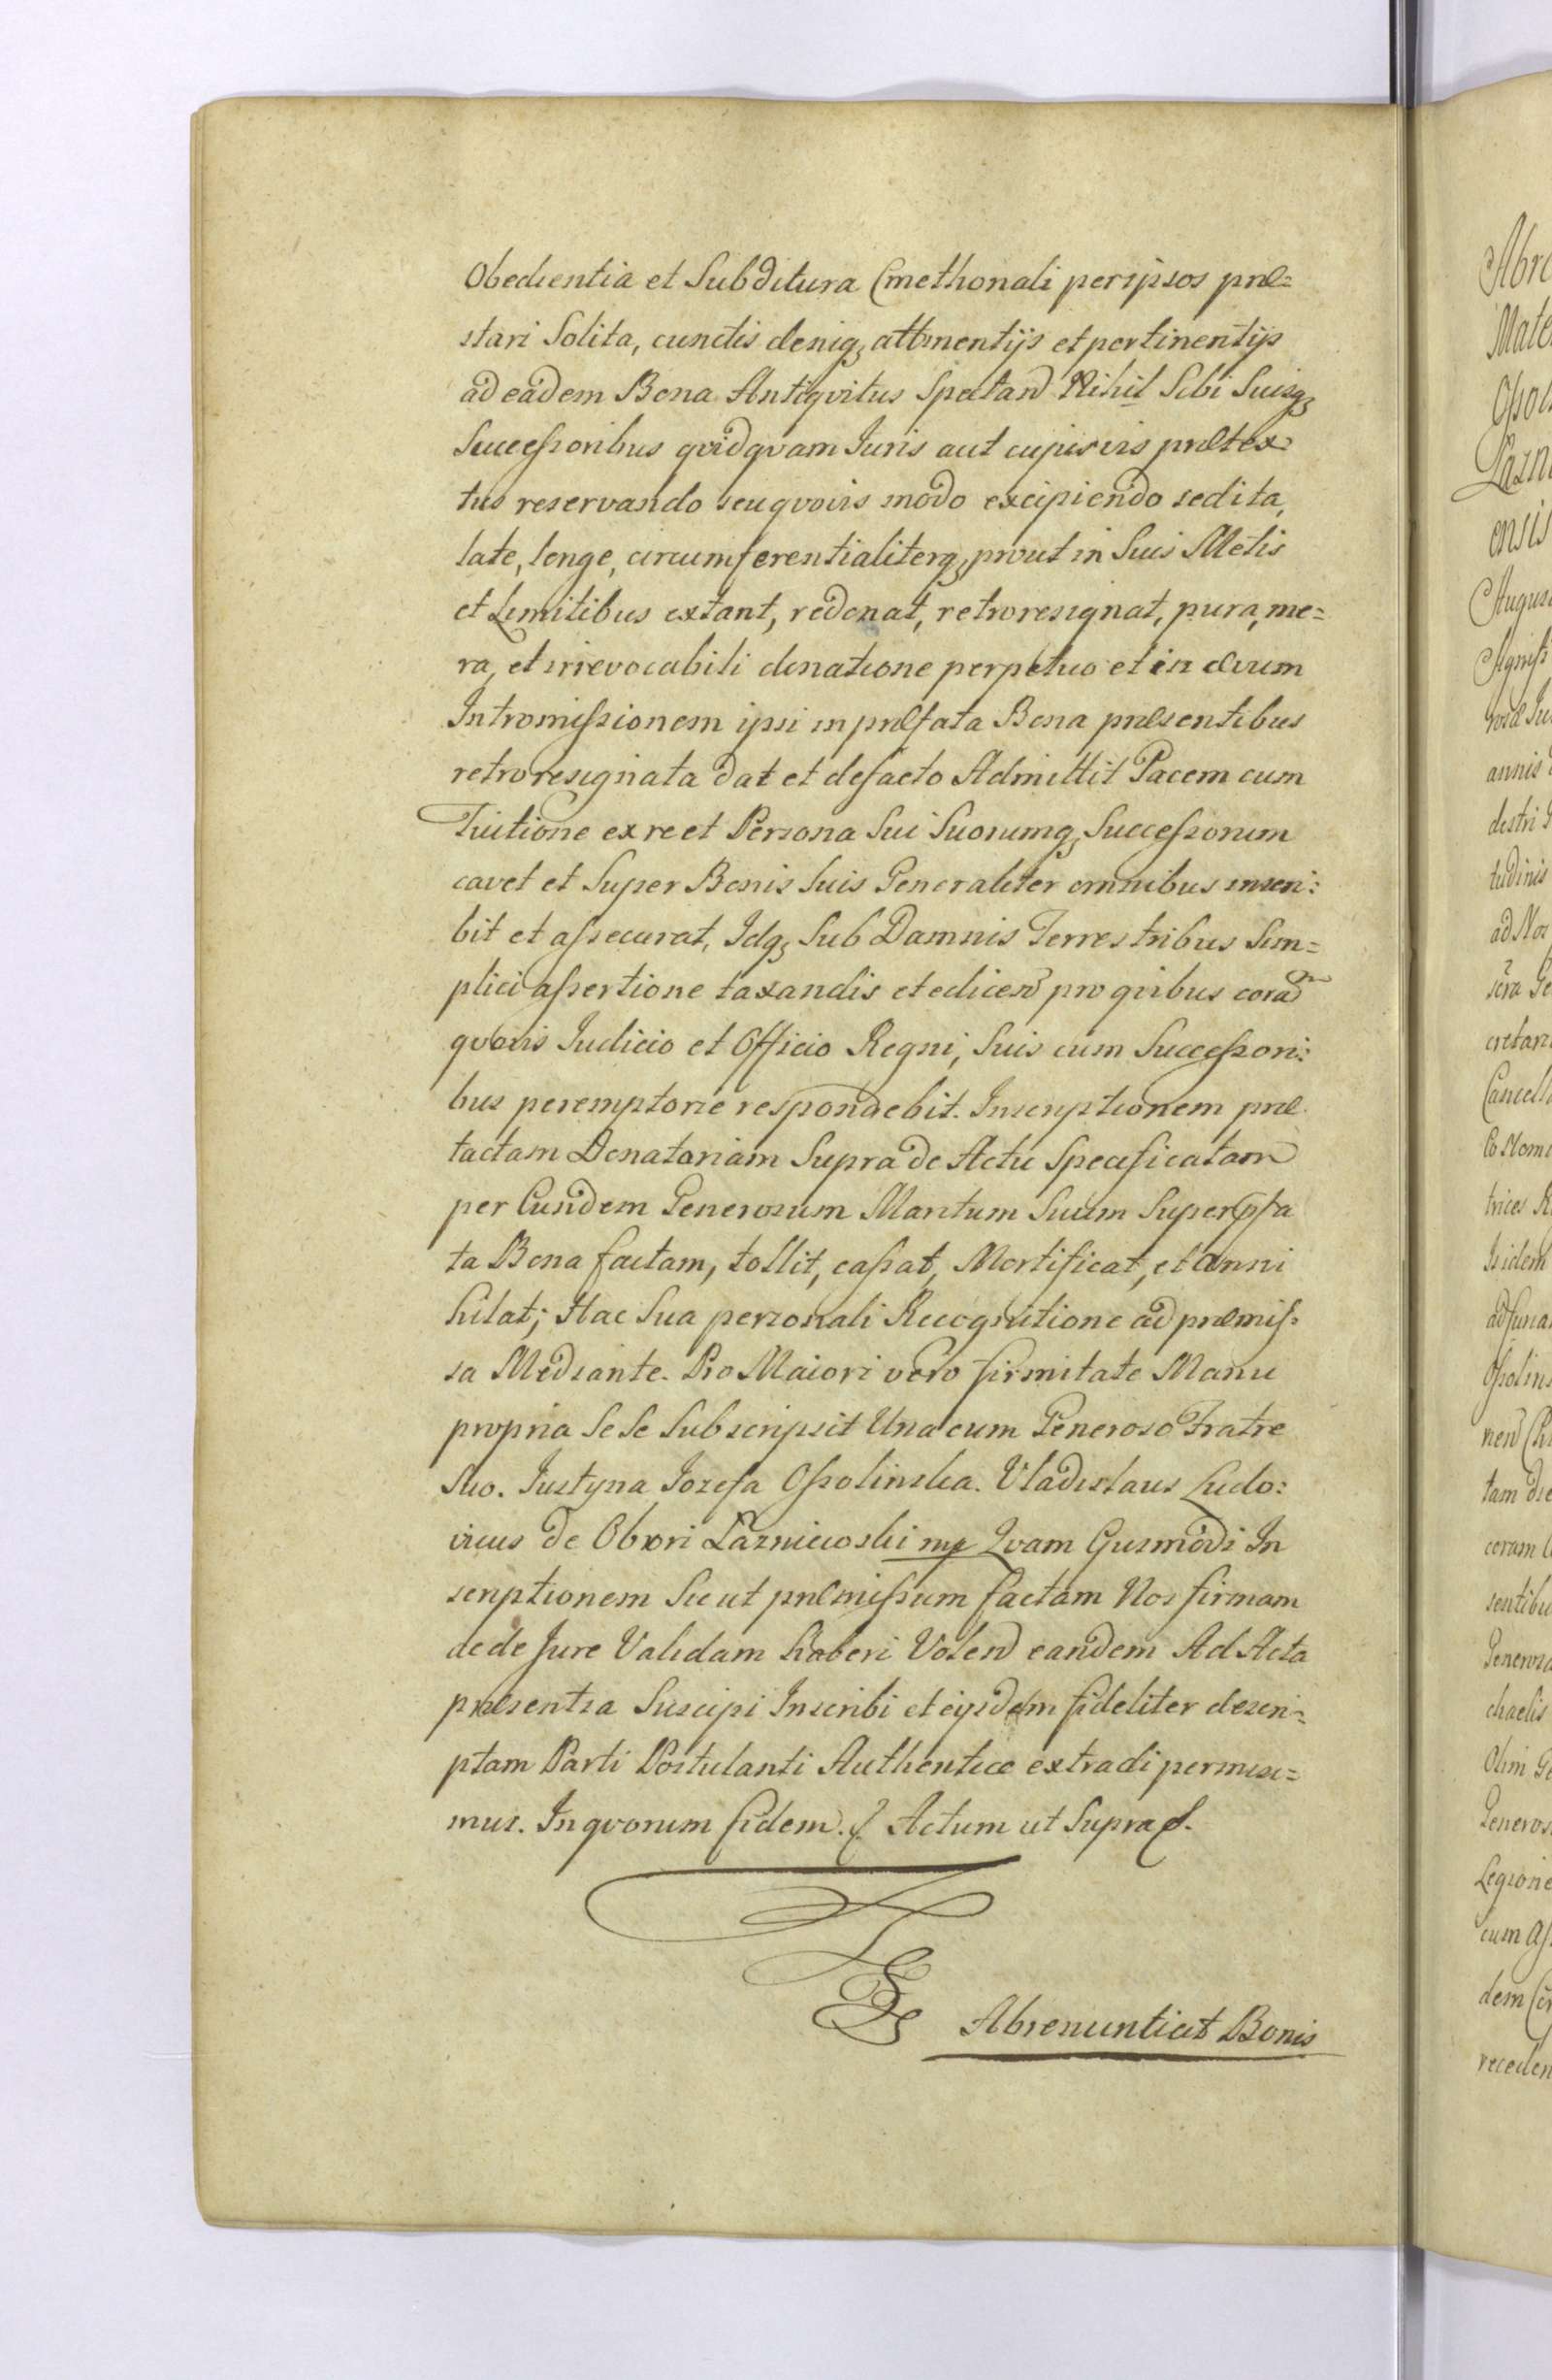 Obedientia et Subditura Cmethonali per ipsos præ=
stari Solita, cunctis deniq; attinentijs et pertinentijs
ad eadem Bona Antiqvitus Spectand Nihil Sibi Suisq;
Successoribus qvidqvam Iuris aut cujusvis prætex=
tus reservando seu qvovis modo excipiendo sed ita,
late, longe, circumferentialiterq; prout in Suis Metis
et Limitibus extant, redonat, retroresignat, pura, me=
ra, et irrevocabili donatione perpetuo et in ævum
Intromissionem ipsi in præfata Bona præsentibus
retroresignata dat et defacto Admittit Pacem cum
Tuitione ex re et Persona Sui Suorumq; Successorum
cavet et Super Bonis Suis Generaliter omnibus inscri:
bit et assecurat, Idq; Sub Damnis Terrestribus Sim=
plici assertione taxandis et edicend pro qvibus corã
qvovis Iudicio et Officio Regni, Suis cum Successori:
bus peremptorie respondebit. Inscriptionem præ
tactam Donatoriam Supra de Actu Specificatam
per Eundem Generosum Maritum Suum Super præfa
ta Bona factam, tollit, cassat, Mortificat, et anni
hilat; Hac Sua personali Recognitione ad præmis=
sa Mediante. Pro Maiori vero firmitate Manu
propria Se Se Subscripsit Una cum Generoso Fratre
Suo. Justyna Jozefa Ossolinska. Vladislaus Ludo:
vicus de Obori Łazniewski mp Qvam Gusmodi In
scriptionem Sic ut præmissum factam Nos firmam
ac de Jure Validam haberi Volend eandem Ad Acta
præsentia Suscipi Inscribi et ejusdem fideliter descri=
ptam Parti Postulanti Authentice extradi permisi=
mus. In qvorum fidem. Actum ut Supra
Abrenuntiat Bonis